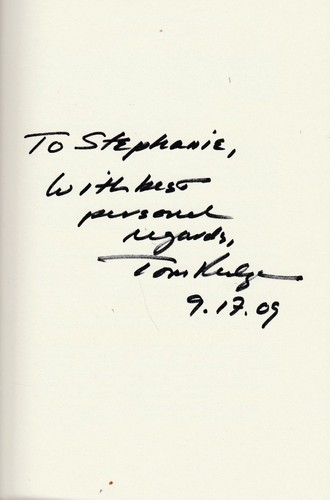 To Stephanie,
With best
personal
regards,
Tom
9.17.09